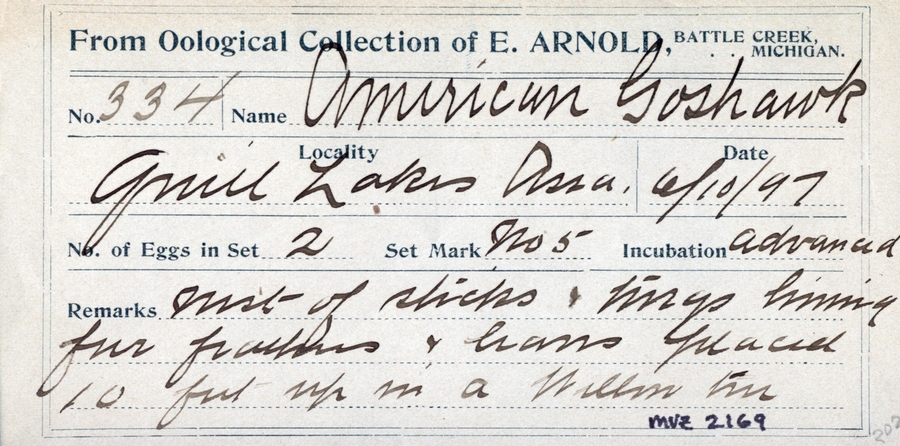 From Oological Collection of E. ARNOLD, BATTLE CREEK, MICHIGAN.
No. 334 Name American Goshawk
Locality Date
Quill Lakes Assa. 6/10/97
No. of Eggs in Set 2 Set Mark No 5 Incubation advanced
Remarks nest of sticks & twigs lining
fur feathers & leaves placed
10 feet up in a Willow tree
MVZ 2169